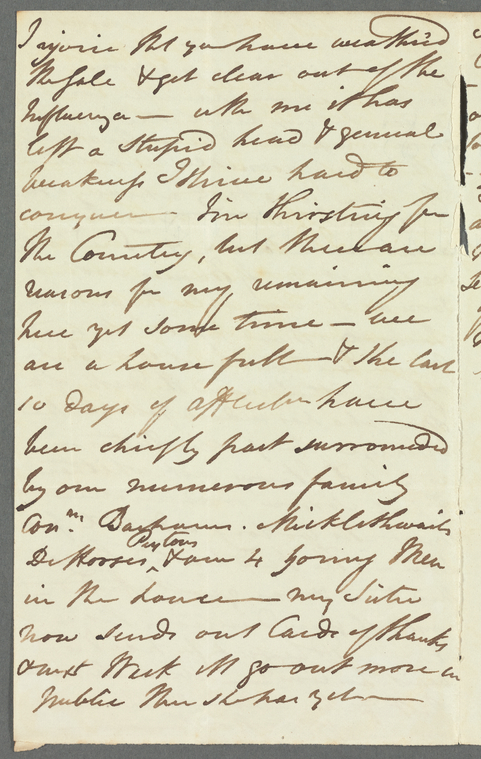 I rejoice tht you have weather'd
the Gale & get clear out of the
Influenza — with me it has
left a stupid head & general
weakness I strive hard to
conquer — I'm thirsting for
the Country, but there are
reasons for my remaining
here yet some time — we
are a house full & the last
10 days of affliction have
been chiefly past surrounded
by our numerous family
Con.ns Micklethwaits
DeHorseys, Peytons & our 4 young Men
in the house — my Sister
now sends out Cards of thanks
& next Week will go out more in
public than she has yet —